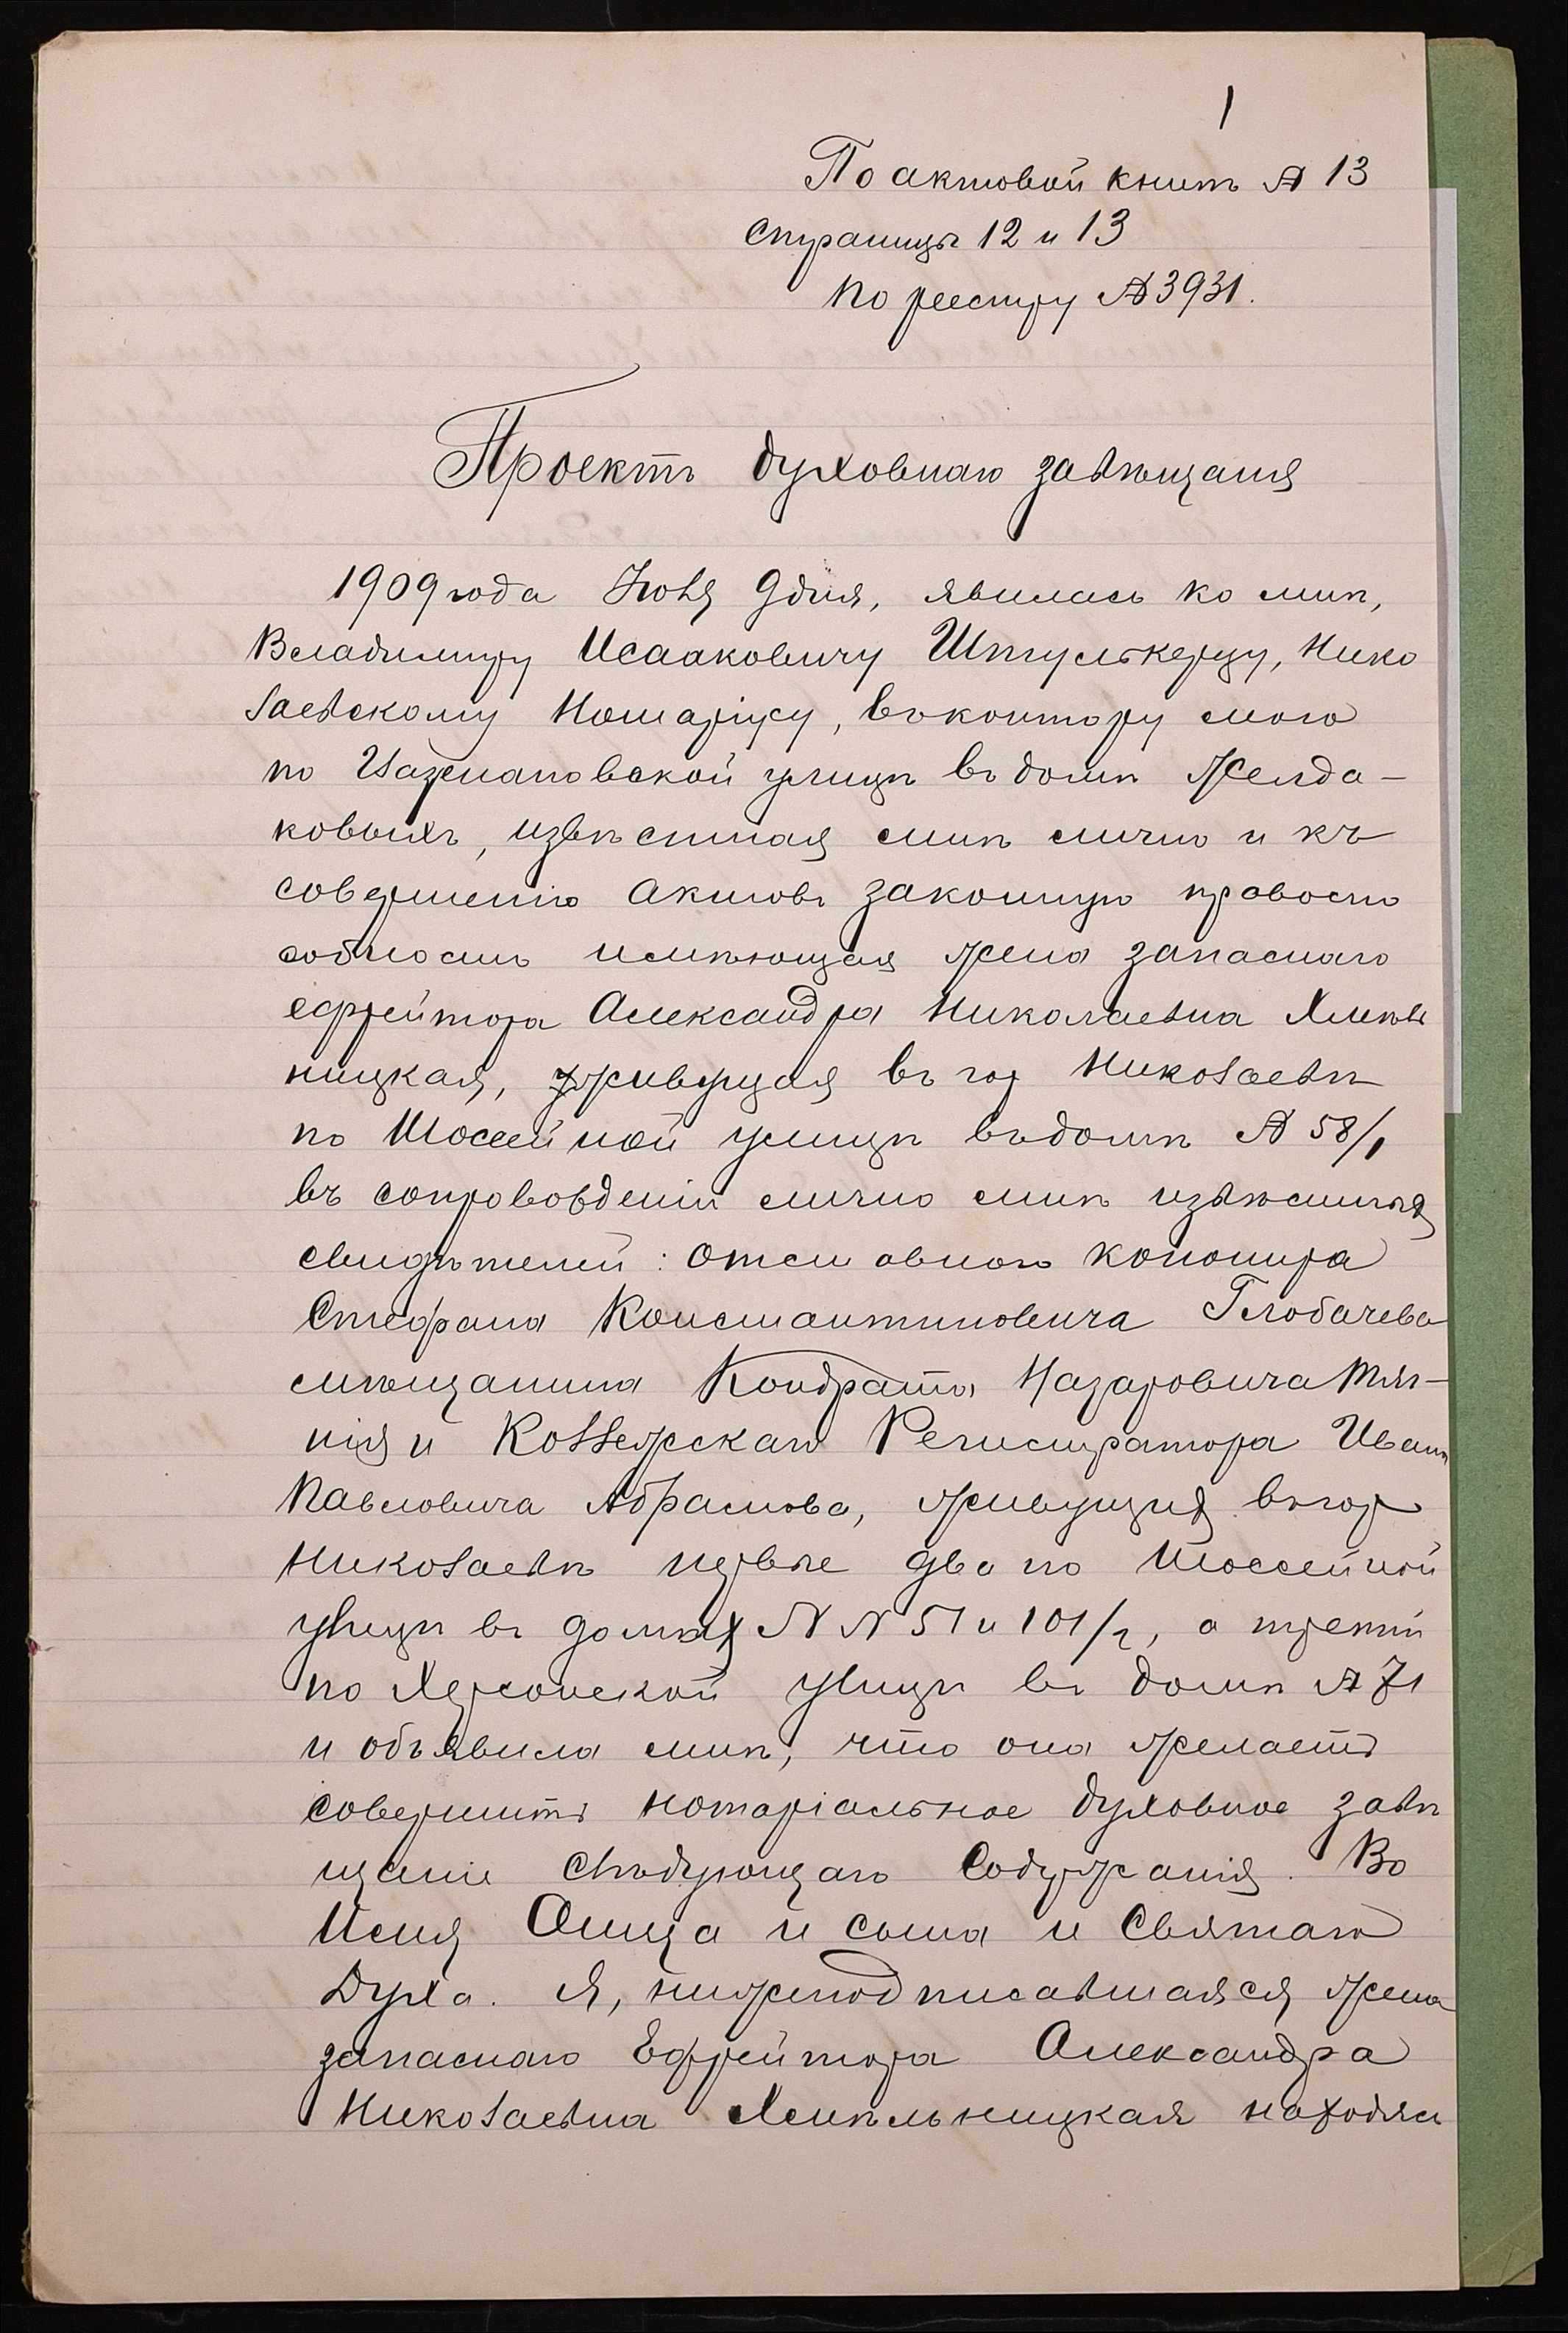 1
По актовой книгѣ № 13
страницы 12 и 13
По реестру № 3931.
Проектъ духовнаго завѣщанія
1909 года Іюня 9 дня, явилась ко мнѣ,
Владимиру Исааковичу Штулькерцу, Нико
лаевскому Нотаріусу, въ контору мою
по улицѣ въ домѣ Желда-
ковыхъ, извѣстная мнѣ лично и къ
совершенію актовъ законную правоспо
собность имѣющая жена запаснаго
ефрейтора Александра Николаевна Хмѣль
ницкая, живущая въ гор Николаевѣ
по Шоссейной улицѣ въ домѣ № 58/1
въ сопровождени лично мнѣ извѣстныхъ
свидѣтелей: отставного канонира
Стефана Константиновича Глобачева
мѣщанина Кондрата Назаровича
и Коллежскаго Регистратора Ивана
Павловича Абрамова, живущихъ въ гор
Николаевѣ первые два по Шоссейной
улицѣ въ домахъ № № 51 и 101/2, а третій
по Херсонской улицѣ въ домѣ № 71
и объявила мнѣ, что она желаетъ
совершить нотаріальное духовное завѣ
щаніе слѣдующаго Содержанія. Во
Имя Отца и сына и Святаго
Духа. Я, нижеподписавшаяся жена
запаснаго Ефрейтора Александра
Николаевна Хмѣльницкая находясь